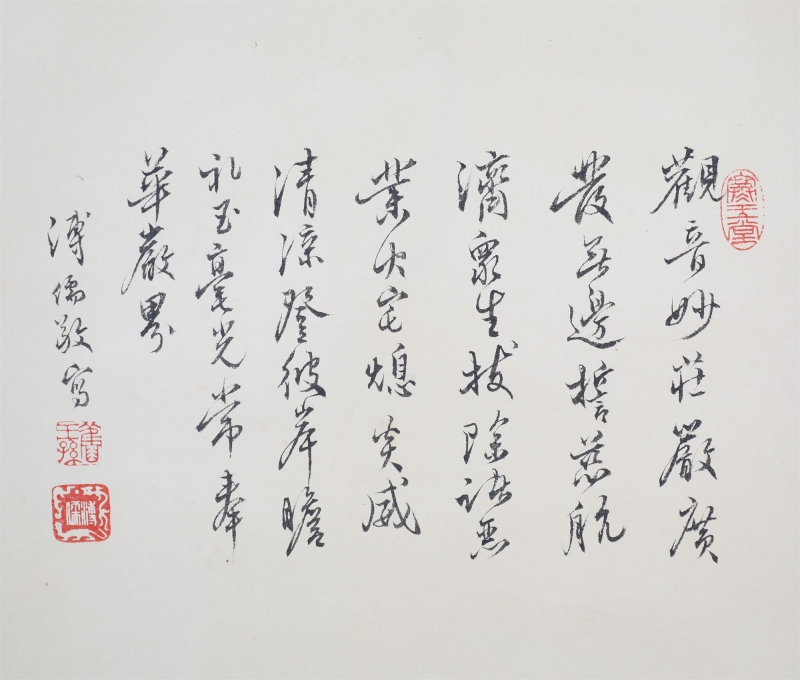 觀音妙莊嚴廣
發無邊誓慈航
濟眾生拔除諸惡
業火宅熄炎威
清涼登彼岸瞻
礼玉毫光常奉
華嚴界
溥儒敬寫
舊王孫
溥儒